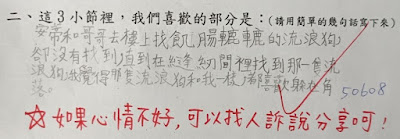 二、這3小節裡，我們喜歡的部分是：（請用簡單的幾句話寫下來）
安帝和哥哥去樓上找飢腸轆轆的流浪狗，
卻沒有找到直到在縫紉間裡找到那一隻流
浪狗我覺得那隻流浪狗和我一樣 都喜歡躲在角
落。
50608
☆如果心情不好，可以找人訴說分享呵！